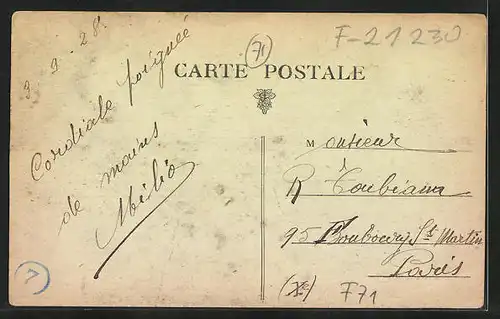 F-21230
71
3.9.28.
CARTE POSTALE
Cordiale poignée
de mains
Monsieur
R Toubiana
95 Faubourg St Martin
Paris
(Xe)
F71